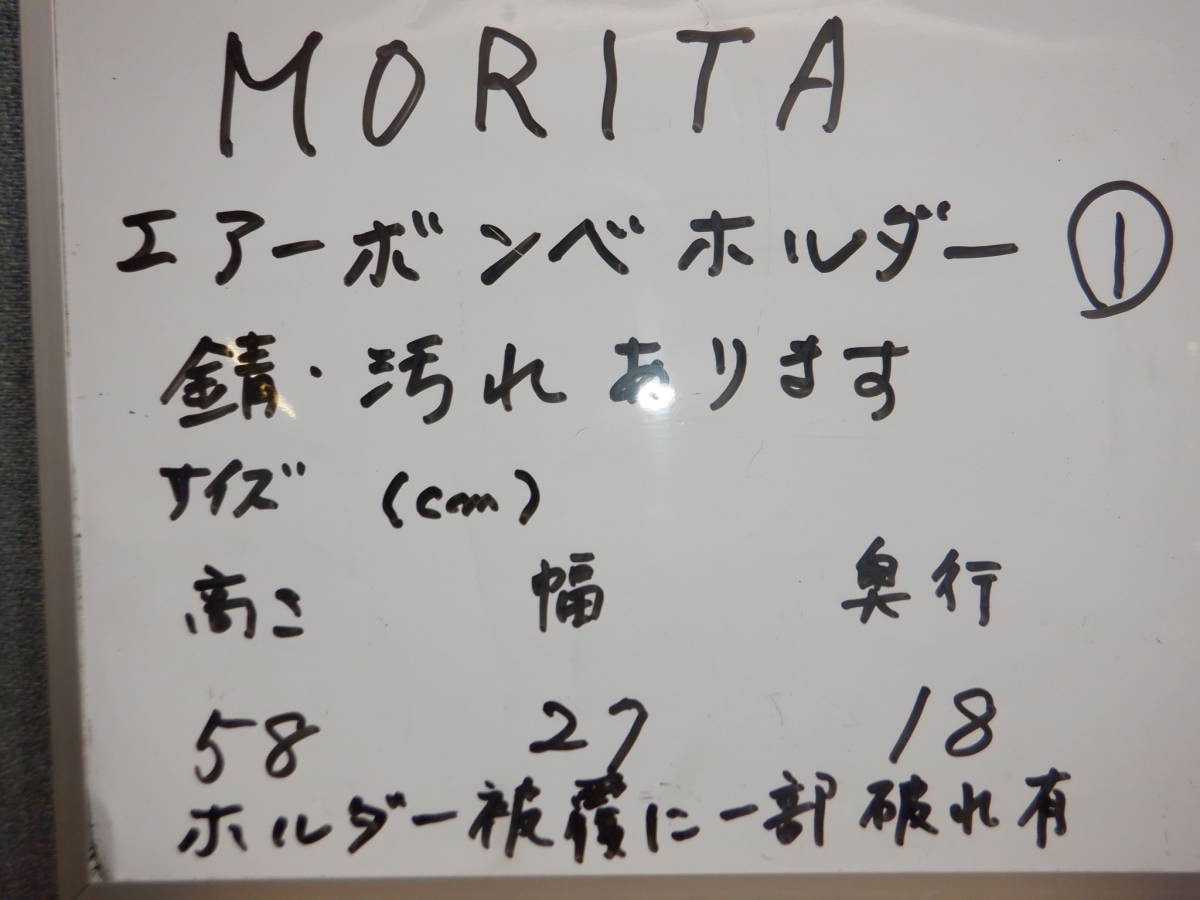 MORITA
エアーボンベホルダー ①
錆・汚れあります
サイズ (cm)
高さ 幅 奥行
58 27 18
ホルダー被覆に一部破れ有